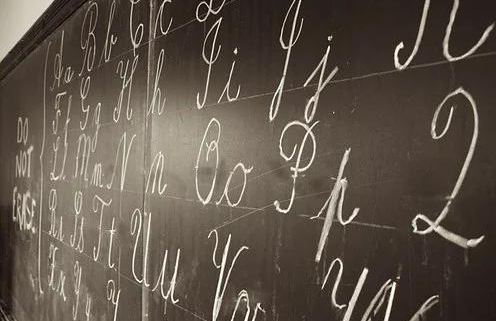 Aa Bb Cc
Ff Gg Hh Ii Jj K
Ll Mm Nn Oo Pp Q
Rr Ss Tt Uu Vv W
Xx Yy
DO
NOT
ERASE